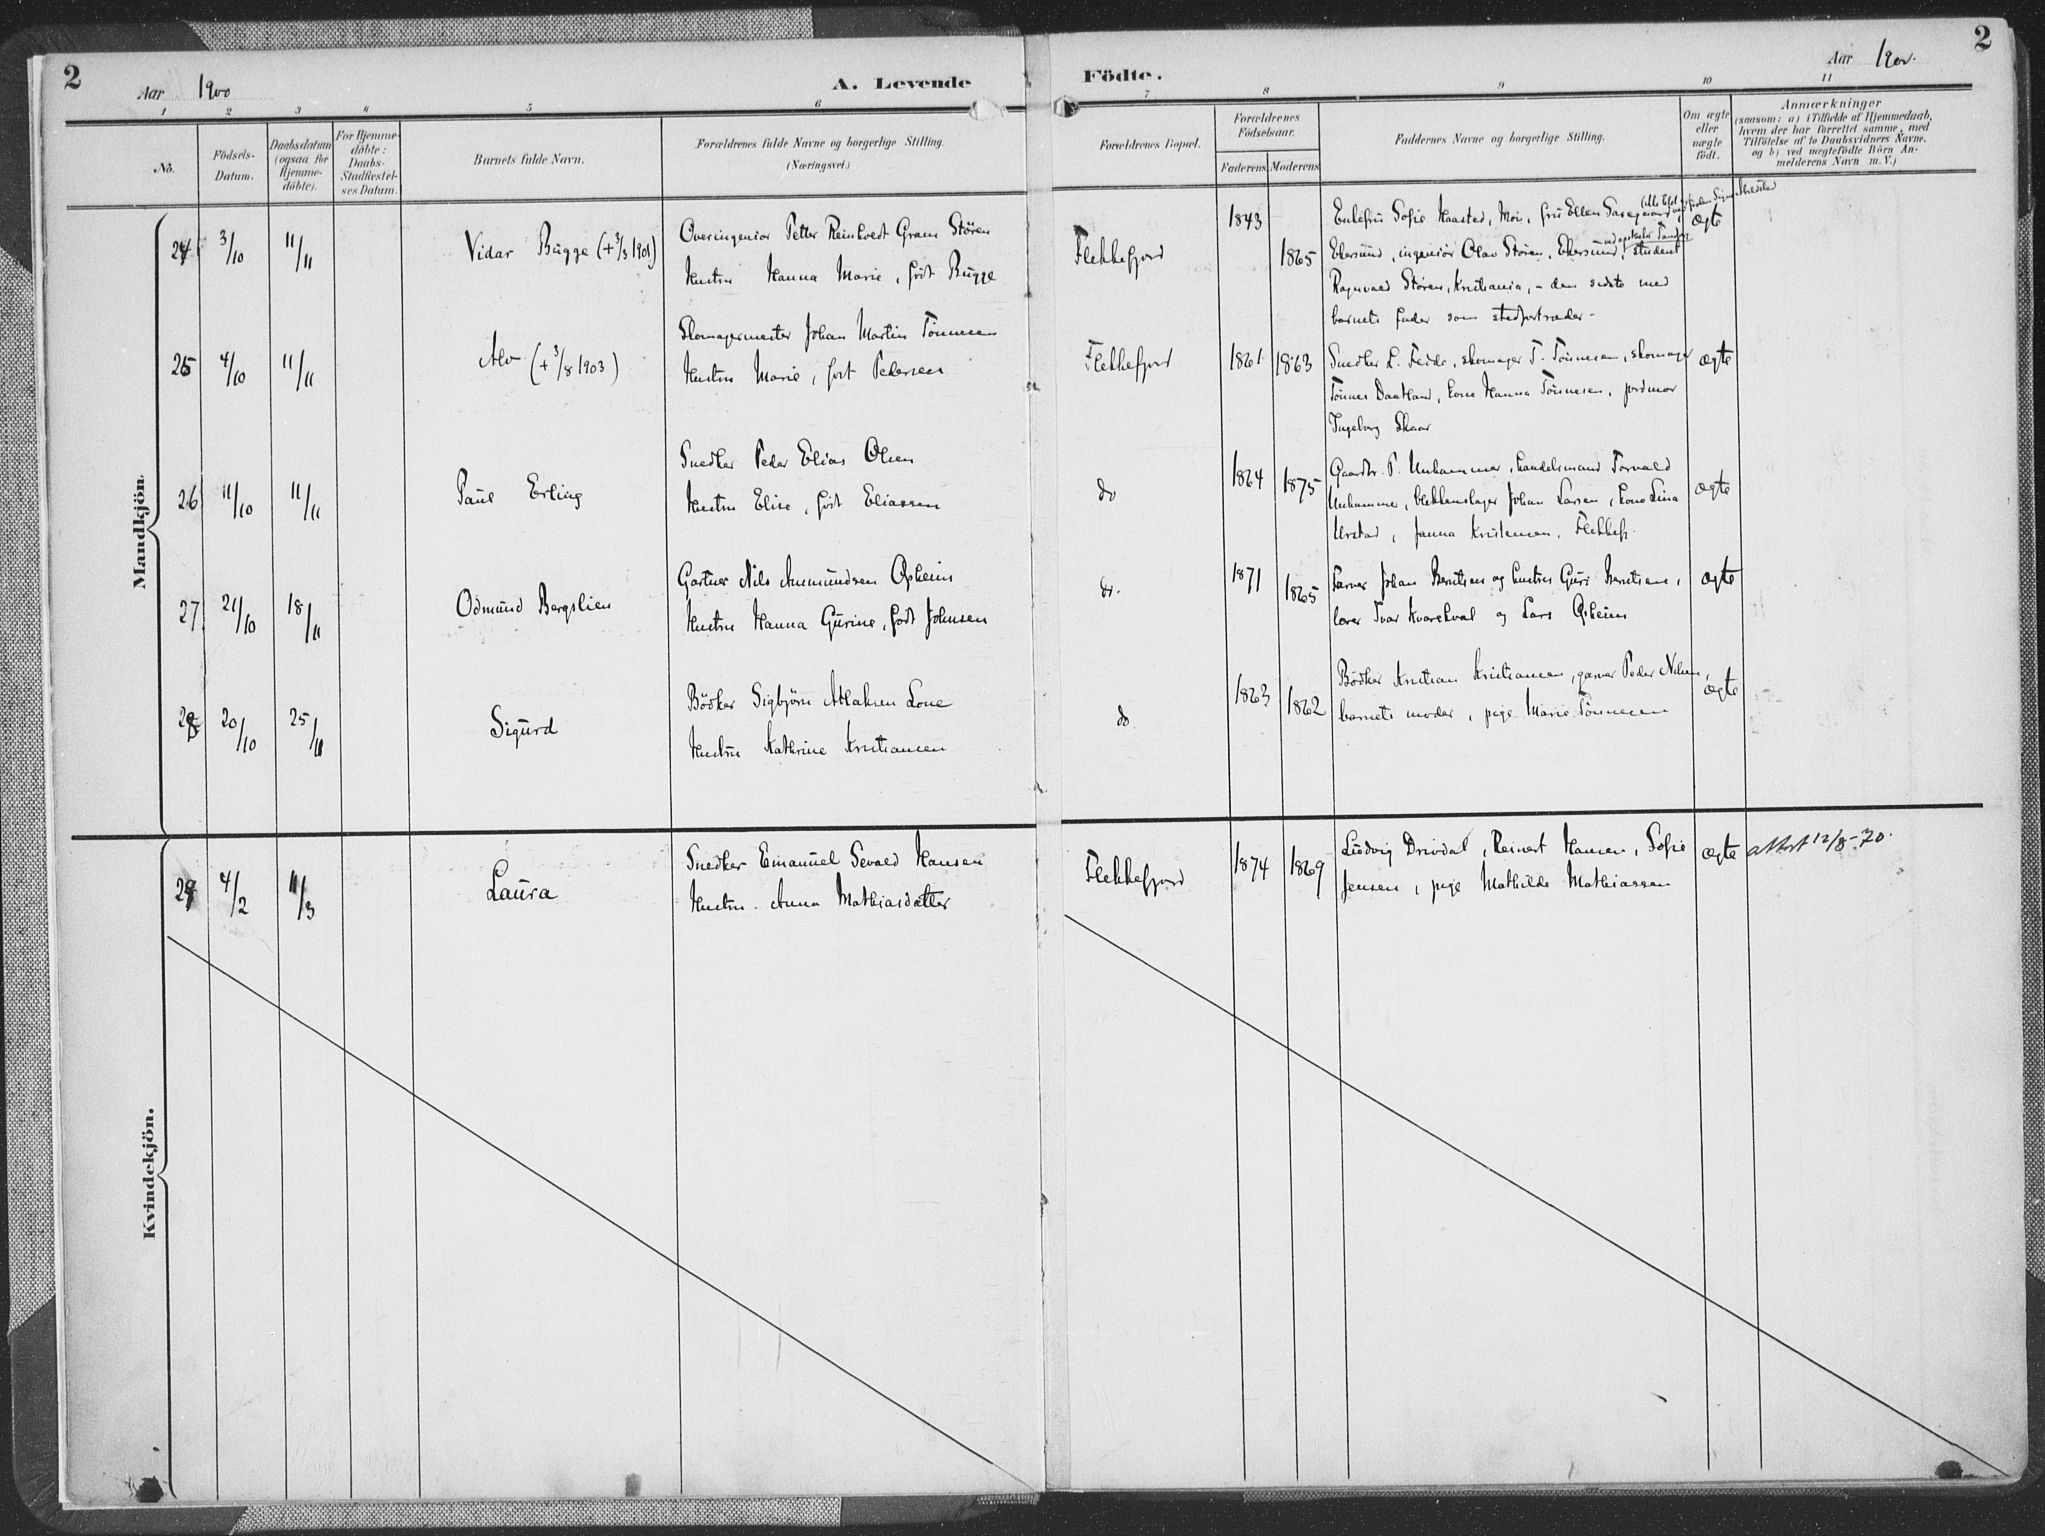 2
Aar 1900
A. Levende
Födte.
Aar 1900.
2
1 2 3 4 5 6 7 8 9 10 11
No.
Födsels-
Datum.
Daabsdatum
(ogsaa for
Hjemme-
döbte).
For Hjemme-
döbte:
Daabs-
Stadfæstel-
ses Datum.
Barnets fulde Navn.
Forældrenes fulde Navne og borgerlige Stilling.
(Næringsvei.)
Forældrenes Bopæl.
Forældrenes
Födselsaar.
Faderens
Moderens
Faddernes Navne og borgerlige Stilling.
Om ægte
eller
uægte
födt.
Anmærkninger
(saasom: a) i Tilfælde af Hjemmedaab,
hvem der har forrettet samme, med
Tilföielse af to Daabsvidners Navne.
og b) ved uægtefödte Börn An-
melderens Navn m. V.)
Mandkjön.
24 3/10 11/11 Vidar Bugge (+3/3 1901)
Overingeniör Petter Reinholdt Gram Stören
Hustru Hanna Marie, födt Bugge
Flekkefjord 1843 1865
Enkefru Sofie Haasted, Moi, fru Ellen
Ekersund, ingeniör Olav Stören, Ekersund, student
Ragnvald Stören, Kristiania, - den sidste med
barnets fader som stedfortræder -
ægte
25 4/10 11/11 Alv (+3/8 1903)
Skomagermester Johan Martin Tönnesen
Hustru Marie, födt Pedersen
Flekkefjord 1861 1863
Snedker L. Fedde, skomager T. Tönnesen, skomager
Tönnes Daatland, kone Hanna Tönnesen, jordmor
Ingeborg Skaar
ægte
26 11/10 11/11 Paul Erling
Snedker Peder Elias Olsen
Hustru Elise, födt Eliassen
do 1864 1875
Gaardbr. P. Unhammer, handelsmand Torvald
Unhammer, blikkenslager Johan Larsen, kone Lina
Urstad, Janna Kristensen, Flekkefj.
ægte
27 21/10 18/11 Odmund Bergslien
Gartner Nils Ammundsen Opheim
Hustru Hanna Gurine, födt Johnsen
do. 1871 1865
Farver Johan Berntsen og hustru Guri Berntsen,
lærer Ivar Kvarekval og Lars Opheim
ægte
28 20/10 25/11 Sigurd
Bödker Sigbjörn Atlaksen Lone
Hustru Kathrine Kristiansen
do 1863 1862
Bödker Kristian Kristiansen, garver Peder Nilsen,
barnets moder, pige Marie Tönnesen
ægte
Kvindekjön.
29 4/2 11/3 Laura
Snedker Emanuel Sevald Hansen
Hustru Anna Mathiasdatter
Flekkefjord 1874 1869
Ludvig Drivdal, Reinert Hansen, Sofie
Jensen, pige Mathilde Mathiassen
ægte attest 12/8-70.